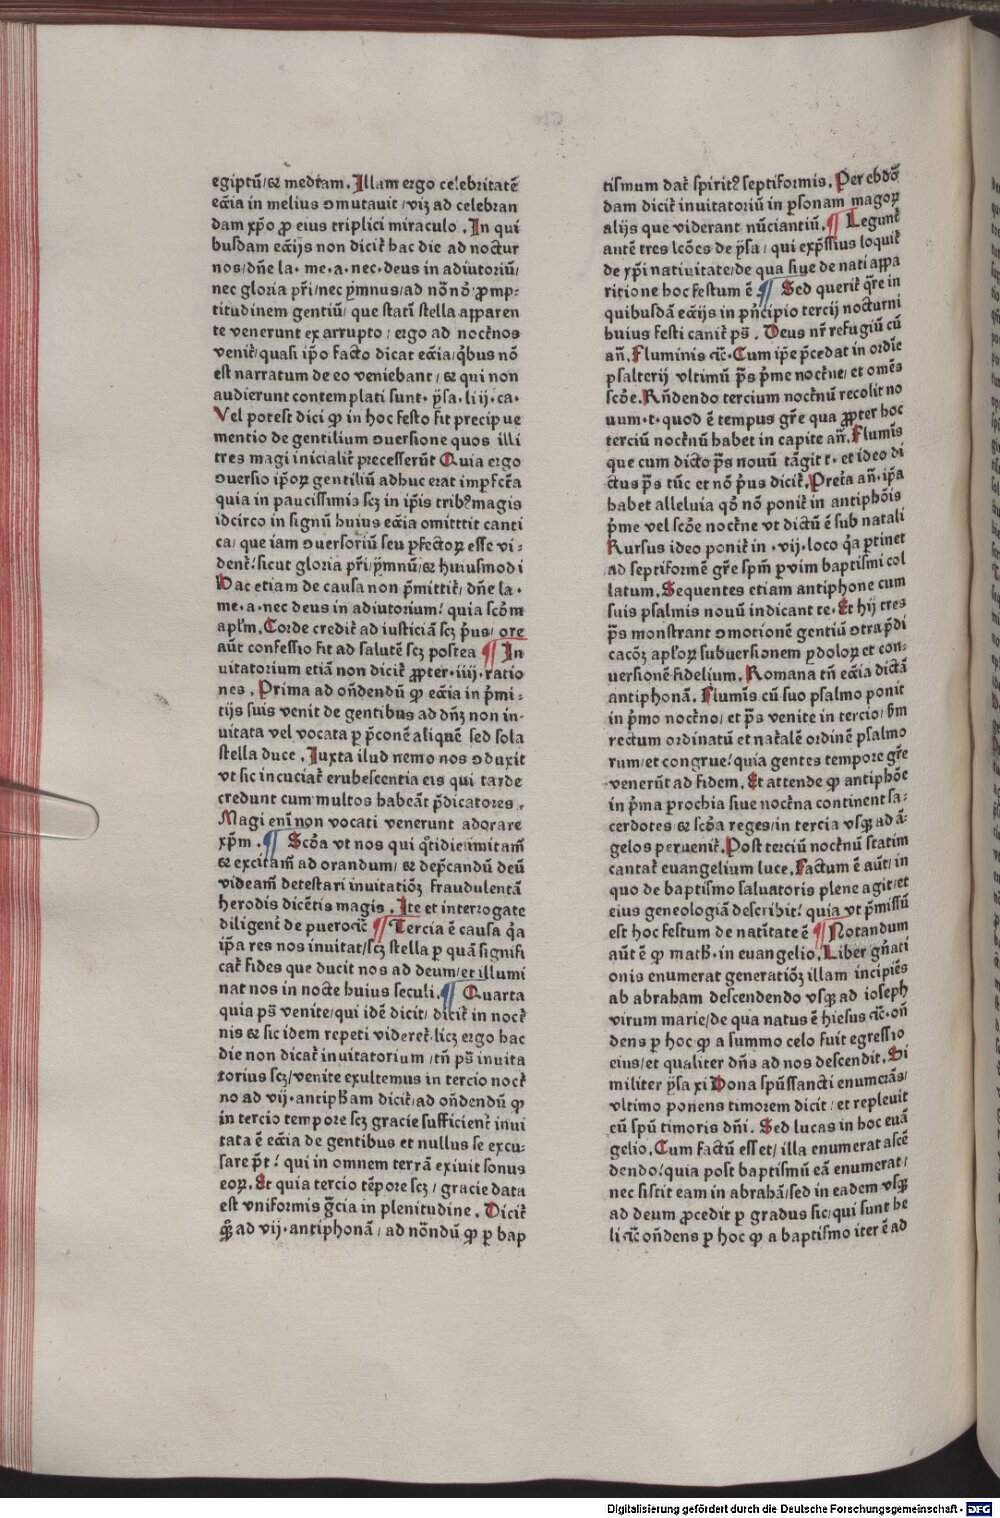 egiptū/⁊ mediam. Illam ergo celebritatē
ecc̄ia in melius ↄmutauit/viʒ ad celebran
dam xp̄o ꝓ eius triplici miraculo. In qui
busdam ecc̄ijs non dicit̄ hac die ad noctur
nos/dn̄e la. me. a. nec. deus in adiutoriū/
nec gloria pr̄i/nec ẏmnus/ad nōnō ꝓmp-
titudinem gentiū/que statī stella apparen
te venerunt ex arrupto/ergo ad noct̄nos
venit̄/quasi ip̄o facto dicat ecc̄ia/q̄bus nō
est narratum de eo veniebant/⁊ qui non
audierunt contemplati sunt. ẏsa. liij. ca.
Vel potest dici ꝙ in hoc festo fit precipue
mentio de gentilium ↄuersione quos illi
tres magi inicialit̄ precesserūt Quia ergo
ↄuersio ip̄oꝝ gentiliū adhuc erat imꝑfc̄ta
quia in paucissimis scʒ in ip̄is trib⁹ magis
idcirco in signū huius ecc̄ia omitttit canti
ca/que iam ↄuersoriū seu ꝑfectoꝝ esse vi-
dent̄/sicut gloria pr̄i/ẏmnū/⁊ huiusmodi
Hac etiam de causa non p̄mittit̄/dn̄e la.
me. a. nec deus in adiutorium/quia scd̄m
apl̄m. Corde credit̄ ad iusticiā scʒ p̄us/ore
aūt confessio fit ad salutē scʒ postea ¶ In
uitatorium etiā non dicit̄ ꝓpter. iiij. ratio
nes. Prima ad on̄dendū ꝙ ecc̄ia in p̄mi-
tijs suis venit de gentibus ad dn̄ʒ non in-
uitata vel vocata ꝑ p̄conē aliquē sed sola
stella duce. Juxta ilud nemo nos ↄduxit
vt sic incuciat̄ erubescentia eis qui tarde
credunt cum multos habeāt p̄dicatores.
Magi enī non vocati venerunt adorare
xp̄m. ¶ Scd̄a vt nos qui q̄tidie inuitam̄
⁊ excitam̄ ad orandum/⁊ dep̄candū deū
videam̄ detestari inuitatiōʒ fraudulentā
herodis dicētis magis. Ite et interrogate
diligent̄ de puero ⁊c̄ ¶ Tercia ē causa q̄a
ip̄a res nos inuitat/scʒ stella ꝑ quā signifi
cat̄ fides que ducit nos ad deum/et illumi
nat nos in nocte huius seculi. ¶ Quarta
quia ps̄ venite/qui idē dicit/dicit̄ in noct̄
nis ⁊ sic idem repeti videret̄. licʒ ergo hac
die non dicat̄ inuitatorium/tn̄ ps̄ inuita
torius scʒ/venite exultemus in tercio noct̄
no ad vij. antiph̄am dicit̄/ad on̄dendū ꝙ
in tercio tempore scʒ gracie sufficient̄ inui
tata ē ecc̄ia de gentibus et nullus se excu-
sare p̄t/qui in omnem terrā exiuit sonus
eoꝝ. Et quia tercio tēpore scʒ/gracie data
est vniformis gr̄cia in plenitudine. Dicit̄
qꝫ ad vij. antiphonā/ad nōndū ꝙ ꝑ bap
tismum dat̄ spirit⁹ septiformis. Per ebdōa
dam dicit̄ inuitatoriū in ꝑsonam magoꝝ
alijs que viderant nūciantiū. ¶ Legunt̄
antē tres lcōes de ẏsa/qui exp̄ssius loquit̄
de xp̄i natiuitate/de qua siue de nati appa
ritione hoc festum ē ¶ Sed querit̄ q̄re in
quibusdā ecc̄ijs in p̄ncipio tercij nocturni
huius festi canit̄ ps̄. Deus nr̄ refugiū cū
an̄. Fluminis ⁊c̄. Cum ip̄e p̄cedat in ordīe
psalterij vltimū ps̄ p̄me noct̄ne/et om̄es
scd̄e. Rn̄dendo tercium noct̄nū recolit no
uum. t. quod ē tempus gr̄e qua ꝓpter hoc
terciū noct̄nū habet in capite an̄. Flumīs
que cum dicto ps̄ nouū tāgit t. et ideo di
ctus ps̄ tūc et nō p̄us dicit̄. Pret̄a an̄. ip̄a
habet alleluia qd̄ nō ponit̄ in antiphōis
p̄me vel scd̄e noct̄ne vt dictū ē sub natali
Rursus ideo ponit̄ in. vij. loco q̄a ꝑtinet
ad septiformē gr̄e spm̄ ꝑ vim baptismi col
latum. Sequentes etiam antiphone cum
suis psalmis nouū indicant te. Et hij tres
ps̄ monstrant ↄmotionē gentiū ↄtra p̄di
cacōʒ apl̄oꝝ subuersionem ꝑdoloꝝ et con-
uersionē fidelium. Romana tn̄ ecc̄ia dictā
antiphonā. Flumīs cū suo psalmo ponit
in p̄mo noct̄no/et ps̄ venite in tercio/h̄m
rectum ordinatū et natalē ordinē psalmo
rum/et congrue/quia gentes tempore gr̄e
venerūt ad fidem. Et attende ꝙ antiphōe
in p̄ma ꝑrochia siue noct̄na continent sa-
cerdotes ⁊ scd̄a reges/in tercia vsqꝫ ad ā-
gelos peruenit̄. Post terciū noct̄nū statim
cantat̄ euangelium luce. Factum ē aūt/in
quo de baptismo saluatoris plene agit̄/et
eius geneologiā describit̄/quia vt p̄missū
est hoc festum de natītate ē ¶ Notandum
aūt ē ꝙ math. in euangelio. Liber gn̄ati
onis enumerat generatiōʒ illam incipiēs
ab abraham descendendo vsqꝫ ad ioseph
virum marie/de qua natus ē hiesus ⁊c̄. on̄
dens ꝑ hoc ꝙ a summo celo fuit egressio
eius/et qualiter dn̄s ad nos descendit. Si
militer ẏsa xi Dona spūssancti enumerās/
vltimo ponens timorem dicit/et repleuit
eū spū timoris dn̄i. Sed lucas in hoc euā
gelio. Cum factū esset/illa enumerat ascē
dendo/quia post baptismū eā enumerat/
nec sistit eam in abrahā/sed in eadem vsqꝫ
ad deum ꝓcedit ꝑ gradus sic/qui sunt he
li ⁊c̄ on̄dens ꝑ hoc ꝙ a baptismo iter ē ad
Digitalisierung gefördert durch die Deutsche Forschungsgemeinschaft - DFG